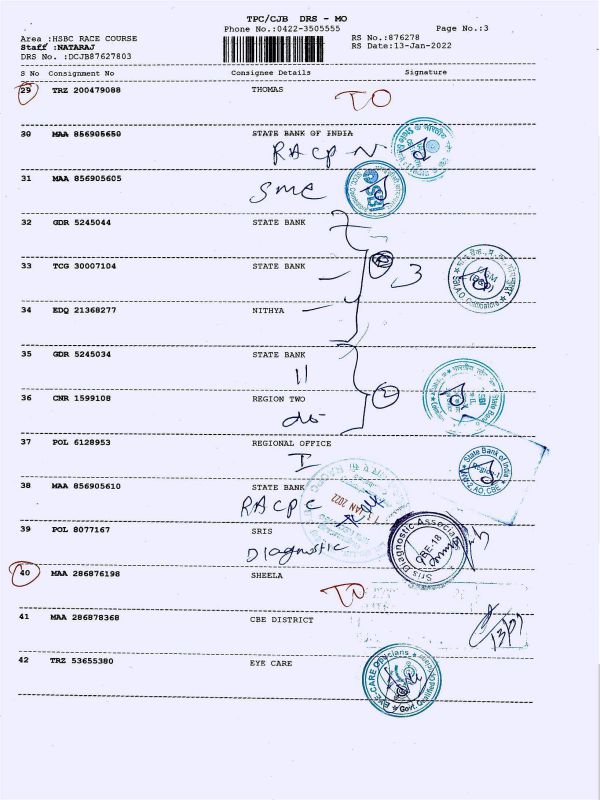 TPC/CJB DRS - MO
Phone No.:0422-3505555
Page No.:3
Area :HSBC RACE COURSE
RS No.:876278
Staff :NATARAJ
RS Date:13-Jan-2022
DRS No. :DCJB87627803
S No Consignment No Consignee Details Signature
29 TRZ 200479088 THOMAS
TO
30 MAA 856905650 STATE BANK OF INDIA
RACPN
31 MAA 856905605
SME
SBI
32 GDR 5245044 STATE BANK
33 TCG 30007104 STATE BANK
3
34 EDQ 21368277 NITHYA
35 GDR 5245034 STATE BANK
11
2
36 CNR 1599108 REGION TWO
do
37 POL 6128953 REGIONAL OFFICE
I
State Bank of India
Region-I
AO, CBE
38 MAA 856905610 STATE BANK
RACPC
JAN 2022
39 POL 8077167 SRIS
Diagnostic
Sris Diagnostic Associa
CBE-18
40 MAA 286876198 SHEELA
41 MAA 286878368 CBE DISTRICT
42 TRZ 53655380 EYE CARE
EYE-CARE Opticians